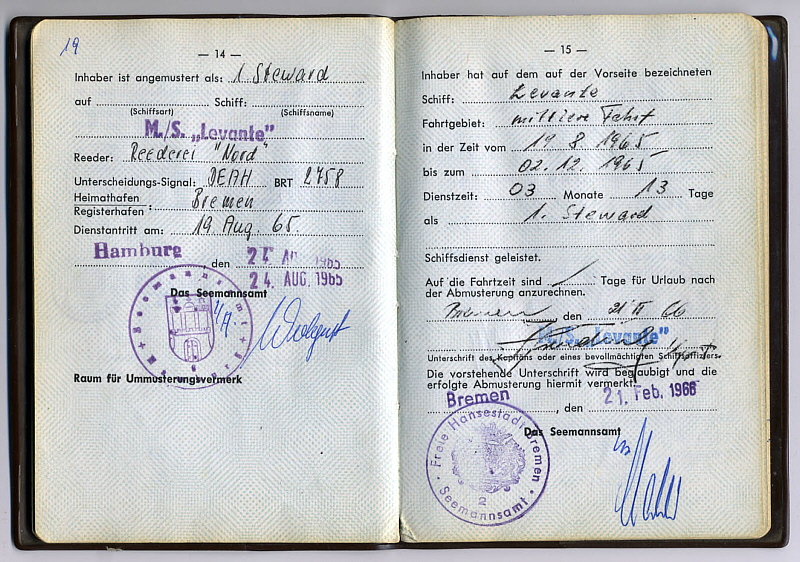 19
— 14 —
Inhaber ist angemustert als: 1. Steward
auf Schiff:
(Schiffsart) (Schiffsname)
M./S. „Levante"
Reeder: Reederei "Nord"
Unterscheidungs-Signal: DEAH BRT 2758
Heimathafen
Registerhafen : Bremen
Dienstantritt am: 19. Aug. 65.
Hamburg, den 24. AUG. 1965
24. AUG. 1965
Das Seemannsamt
Raum für Ummusterungsvermerk
— 15 —
Inhaber hat auf dem auf der Vorseite bezeichneten
Schiff: Levante
Fahrtgebiet: mittlere Fahrt
in der Zeit vom 19. 8. 1965
bis zum 02. 12. 1965
Dienstzeit: 03 Monate 13 Tage
als 1. Steward
Schiffsdienst geleistet.
Auf die Fahrtzeit sind Tage für Urlaub nach
der Abmusterung anzurechnen.
Bremen, den 21 II 66
M./S. „Levante"
Unterschrift des Kapitäns oder eines bevollmächtigten Schiffsoffiziers
Die vorstehende Unterschrift wird beglaubigt und die
erfolgte Abmusterung hiermit vermerkt.
Bremen, den 21. Feb. 1966
Das Seemannsamt
Freie Hansestadt Bremen
Seemannsamt
2